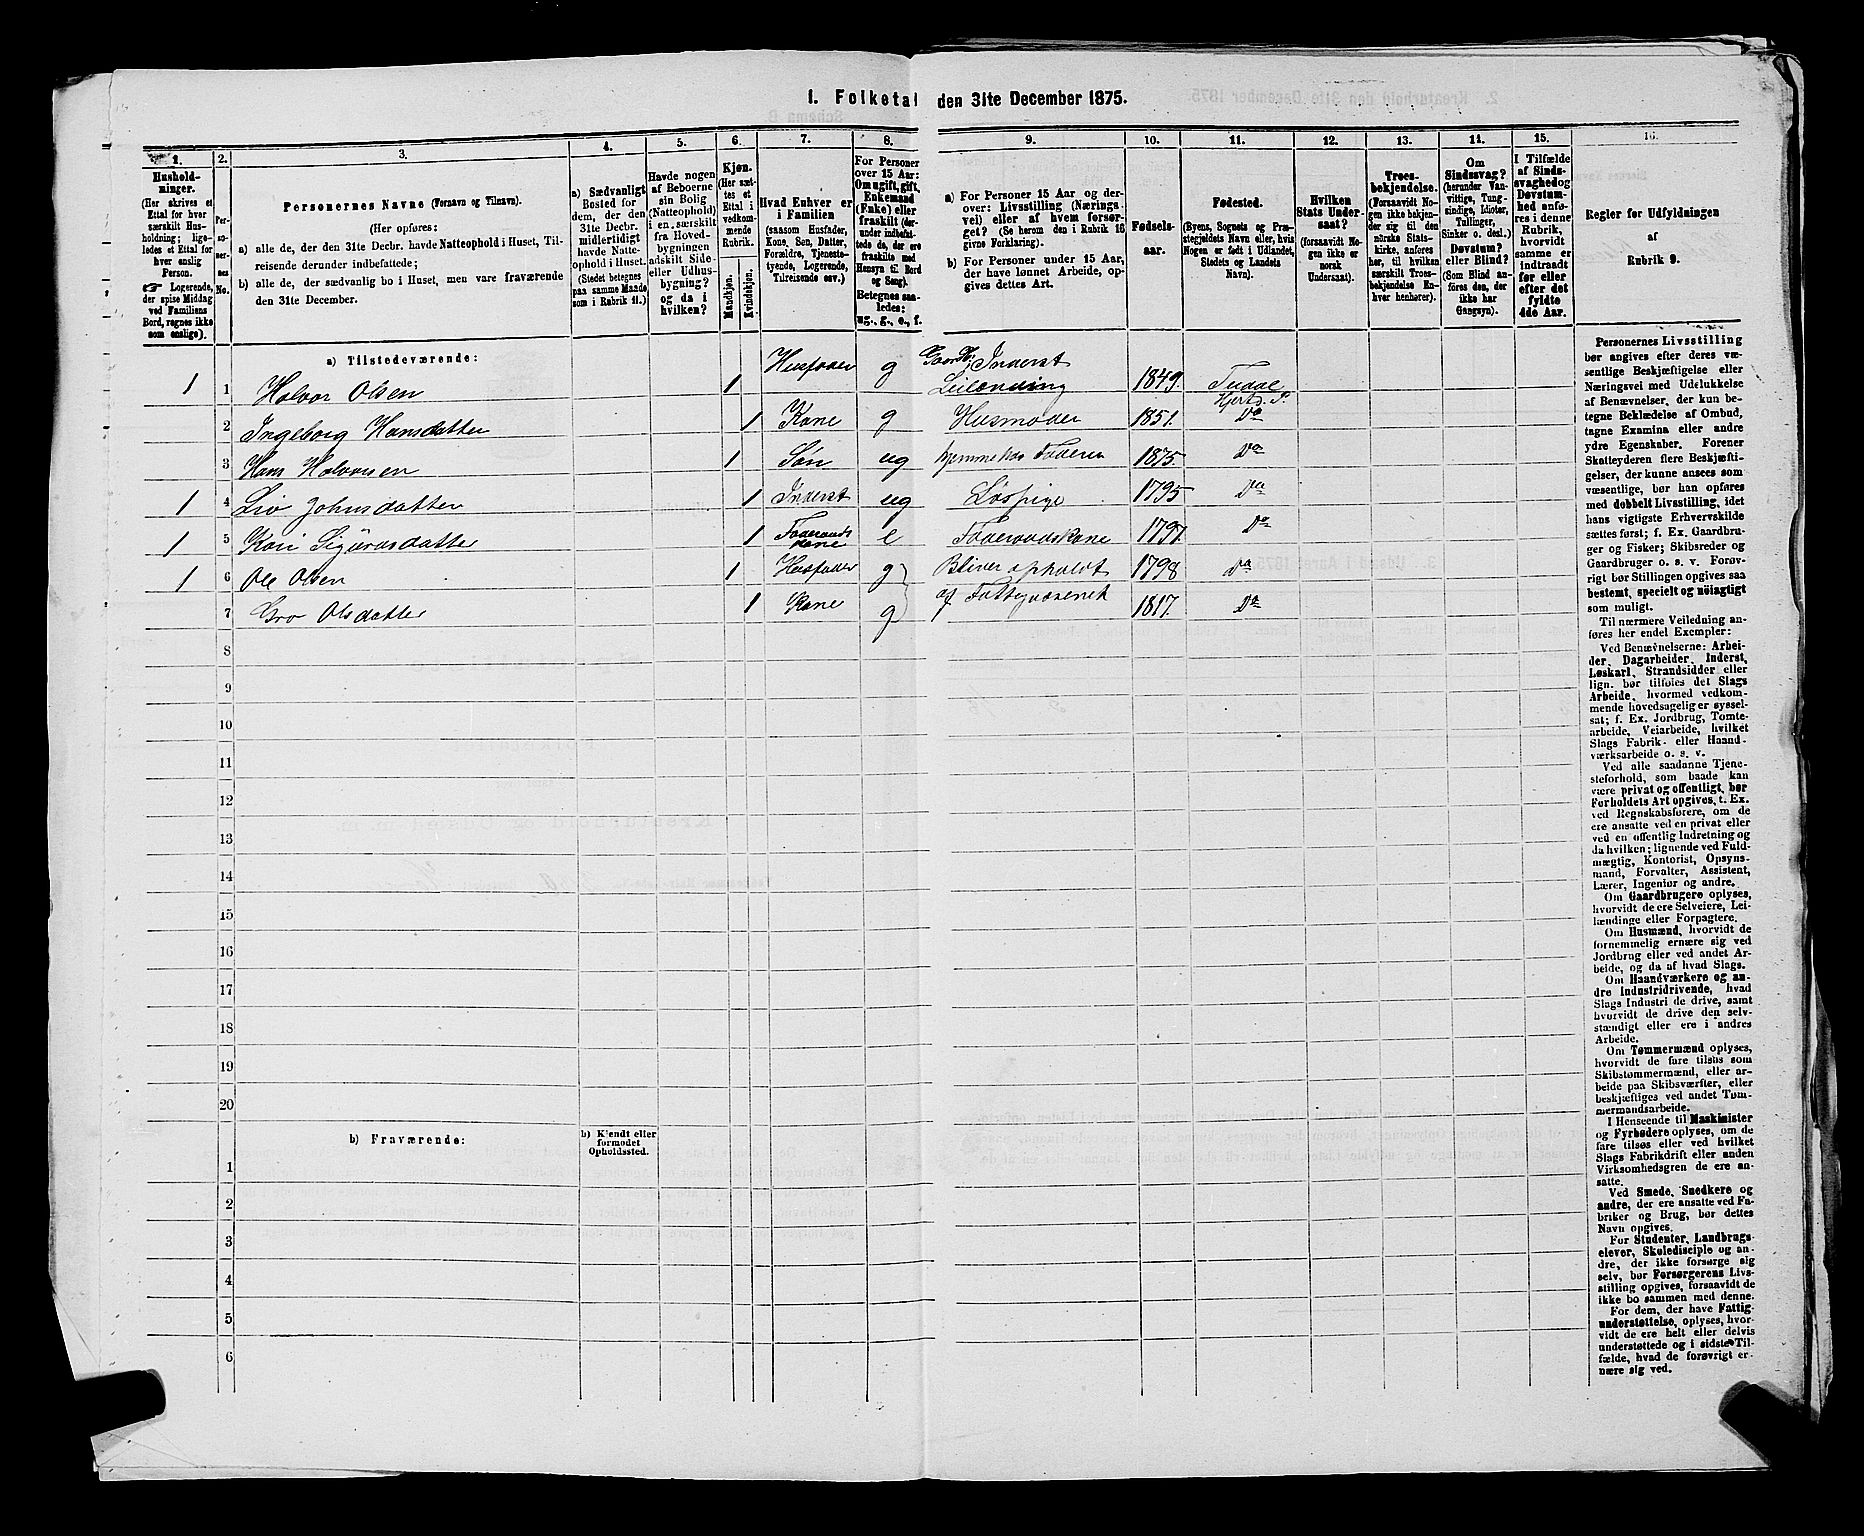 1. Folketal den 31te December 1875.
1. 2. 3. 4. 5. 6. 7. 8. 9. 10. 11. 12. 13. 14. 15. 16.
Husholdninger.
(Her skrives et
Ettal for hver
særskilt Husholdning;
ligeledes et Ettal for
hver enslig
Person.
Logerende,
der spise Middag
ved Familiens
Bord, regnes ikke
som enslige).
Personernes No.
Personernes Navne (Fornavn og Tilnavn).
(Her opføres:
a) alle de, der den 31te Decbr. havde Natteophold i Huset, Tilreisende derunder indbefattede;
b) alle de, der sædvanlig bo i Huset, men vare fraværende
den 31te December.
a) Sædvanligt
Bosted for
dem, der den
31te Decbr.
midlertidigt
havde Natteophold i Huset.
(Stedet betegnes
paa samme Maade
som i Rubrik 11.)
Havde nogen
af Beboerne
sin Bolig
(Natteophold)
i en særskilt
fra Hovedbygningen
adskilt Side-
eller Udhusbygning?
og da i
hvilken?
Kjøn.
(Her sættes et
Ettal i
vedkommende
Rubrik.
Mandkjøn.
Kvindekjøn.
Hvad Enhver er
i Familien
(saasom Husfader,
Kone, Søn, Datter,
Forældre, Tjenestetyende, Logerende,
Tilreisende osv.)
For Personer
over 15 Aar:
Om ugift, gift,
Enkemand
(Enke) eller
fraskilt (derunder indbefattede de, der ere
fraskilte med
Hensyn til Bord
og Seng).
Betegnes saaledes:
ug., g., e., f.
a) For Personer 15 Aar og derover: Livsstilling (Næringsvei) eller af hvem forsørget? (Se herom den i Rubrik 16
givne Forklaring).
b) For Personer under 15 Aar,
der have lønnet Arbeide, opgives dettes Art.
Fødselsaar.
Fødested.
(Byens, Sognets og Præstegjeldets Navn eller, hvis
Nogen er født i Udlandet,
Stedets og Landets
Navn).
Hvilken
Stats Undersaat?
(forsaavidt Nogen ikke er
norsk
Undersaat).
Troesbekjendelse.
(Forsaavidt Nogen ikke bekjender sig til den
norske Statskirke, anføres
her, til hvilken
særskilt Troesbekjendelse Enhver henhører).
Om
Sindssvag?
(herunder Vanvittige, Tungsindige, Idioter,
Tullinger,
Sinker o. desl.).
Døvstum?
eller Blind?
(Som Blind anføres den, der
ikke har
Gangsyn).
I Tilfælde
af Sindssvaghed og
Døvstumhed anføres i denne
Rubrik,
hvorvidt
samme er
indtraadt
før eller
efter det
fyldte
4de Aar.
Regler for Udfyldningen
af
Rubrik 9.
a) Tilstedeværende:
1 1 Halvor Olsen 1 Husfader g Gaardbr; Inderst Leilænding 1849. Tudal Hjertd. P.
2 Ingeborg Hansdatter 1 Kone g Husmoder 1851. Do
3 Hans Halvorsen 1 Søn ug hjemme hos Faderen 1875. Do
1 4 Liv Johnsdatter 1 Inderst ug Løspige 1795 Do
1 5 Kari Sigursdatter 1 Foderaads kone e Foderaadskone 1797. Do
1 6 Ole Olsen 1 Husfader g Bliver opholdt 1798 Do
7 Gro Olsdatter 1 Kone g af Fattigvæsenet 1817. Do
8
9
10
11
12
13
14
15
16
17
18
19
20
b) Fraværende: b) Kjendt eller
formodet
Opholdssted.
1
2
3
4
5
6
Personernes Livsstilling
bør angives efter deres væsentlige Beskjæftigelse eller
Næringsvei med Udelukkelse
af Benævnelser, der kun betegne Beklædelse af Ombud,
tagne Examina eller andre
ydre Egenskaber. Forener
Skatteyderen flere Beskjæftigelser, der kunne ansees som
væsentlige, bør han opføres
med dobbelt Livsstilling, idet
hans vigtigste Erhvervskilde
sættes først; f. Ex. Gaardbruger og Fisker; Skibsreder og
Gaardbruger o. s. v. Forøvrigt bør Stillingen opgives saa
bestemt, specielt og nøiagtigt
som muligt.
Til nærmere Veiledning anføres her endel Exempler:
Ved Benævnelserne: Arbeider, Dagarbeider, Inderst,
Løskarl, Strandsidder eller
lign. bør tilføies det Slags
Arbeide, hvormed vedkommende hovedsagelig er sysselsat; f. Ex. Jordbrug, Tomtearbeide, Veiarbeide, hvilket
Slags Fabrik- eller Haandværksarbeide o. s. v.
Ved alle saadanne Tjenesteforhold, som baade kan
være privat og offentligt, bør
Forholdets Art opgives, t. Ex.
ved Regnskabsførere, om de
ere ansatte ved en privat eller
ved en offentlig Indretning og
da hvilken; lignende ved Fuldmægtig, Kontorist, Opsynsmand, Forvalter, Assistent,
Lærer, Ingeniør og andre.
Om Gaardbrugere oplyses,
hvorvidt de ere Selveiere, Leilændinge eller Forpagtere.
Om Husmænd, hvorvidt de
fornemmelig ernære sig ved
Jordbrug eller ved andet Arbeide, og da af hvad Slags.
Om Haandværkere og andre Industridrivende, hvad
Slags Industri de drive, samt
hvorvidt de drive den selvstændigt eller ere i andres
Arbeide.
Om Tømmermænd oplyses,
hvorvidt de fare tilsøs som
Skibstømmermænd, eller arbeide paa Skibsværfter, eller
beskjæftiges ved andet Tømmermandsarbeide.
I Henseende til Maskinister
og Fyrbødere oplyses, om de
fare tilsøs eller ved hvilket
Slags Fabrikdrift eller anden
Virksomhedsgren de ere ansatte.
Ved Smede, Snedkere og
andre, der ere ansatte ved Fabriker og Brug, bør dettes
Navn opgives.
For Studenter, Landbrugselever, Skoledisciple og andre, der ikke forsørge sig
selv, bør Forsørgerens Livsstilling opgives, forsaavidt de
ikke bo sammen med denne.
For dem, der have Fattigunderstøttelse, oplyses, hvorvidt de ere helt eller delvis
understøttede og i sidste Tilfælde, hvad de forøvrigt ernære sig ved.